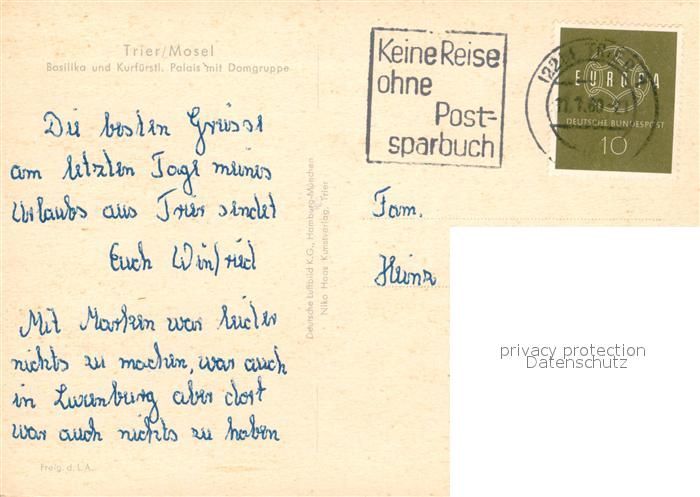 Trier/Mosel
Basilika und Kurfürstl. Palais mit Domgruppe
Die besten Grüsse
am letzten Tage meines
Urlaubs aus Trier sendet
Euch Winfried
Mit Marken war leider
nichts zu machen, war auch
in Luxenburg aber dort
war auch nichts zu haben
Freig. d. L.A.
Deutsche Luftbild K.G., Hamburg-München
Niko Haas Kunstverlag, Trier
Keine Reise
ohne
Post-
sparbuch
EUROPA
DEUTSCHE BUNDESPOST
10
Fam.
Heinz
privacy protection
Datenschutz